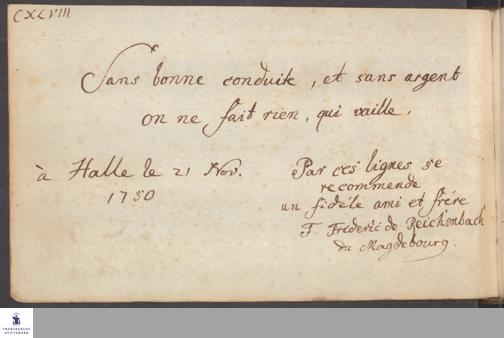 CXLVIII
Sans bonne conduite, et sans argent
on ne fait rien, qui vaille.
à Halle le 21 Nov.
1750
Par ces lignes se
recommende
un fidéle ami et frére
F. Frederic de Reichenbach
du Magdebourg.
FRANCKESCHE
STIFTUNGEN